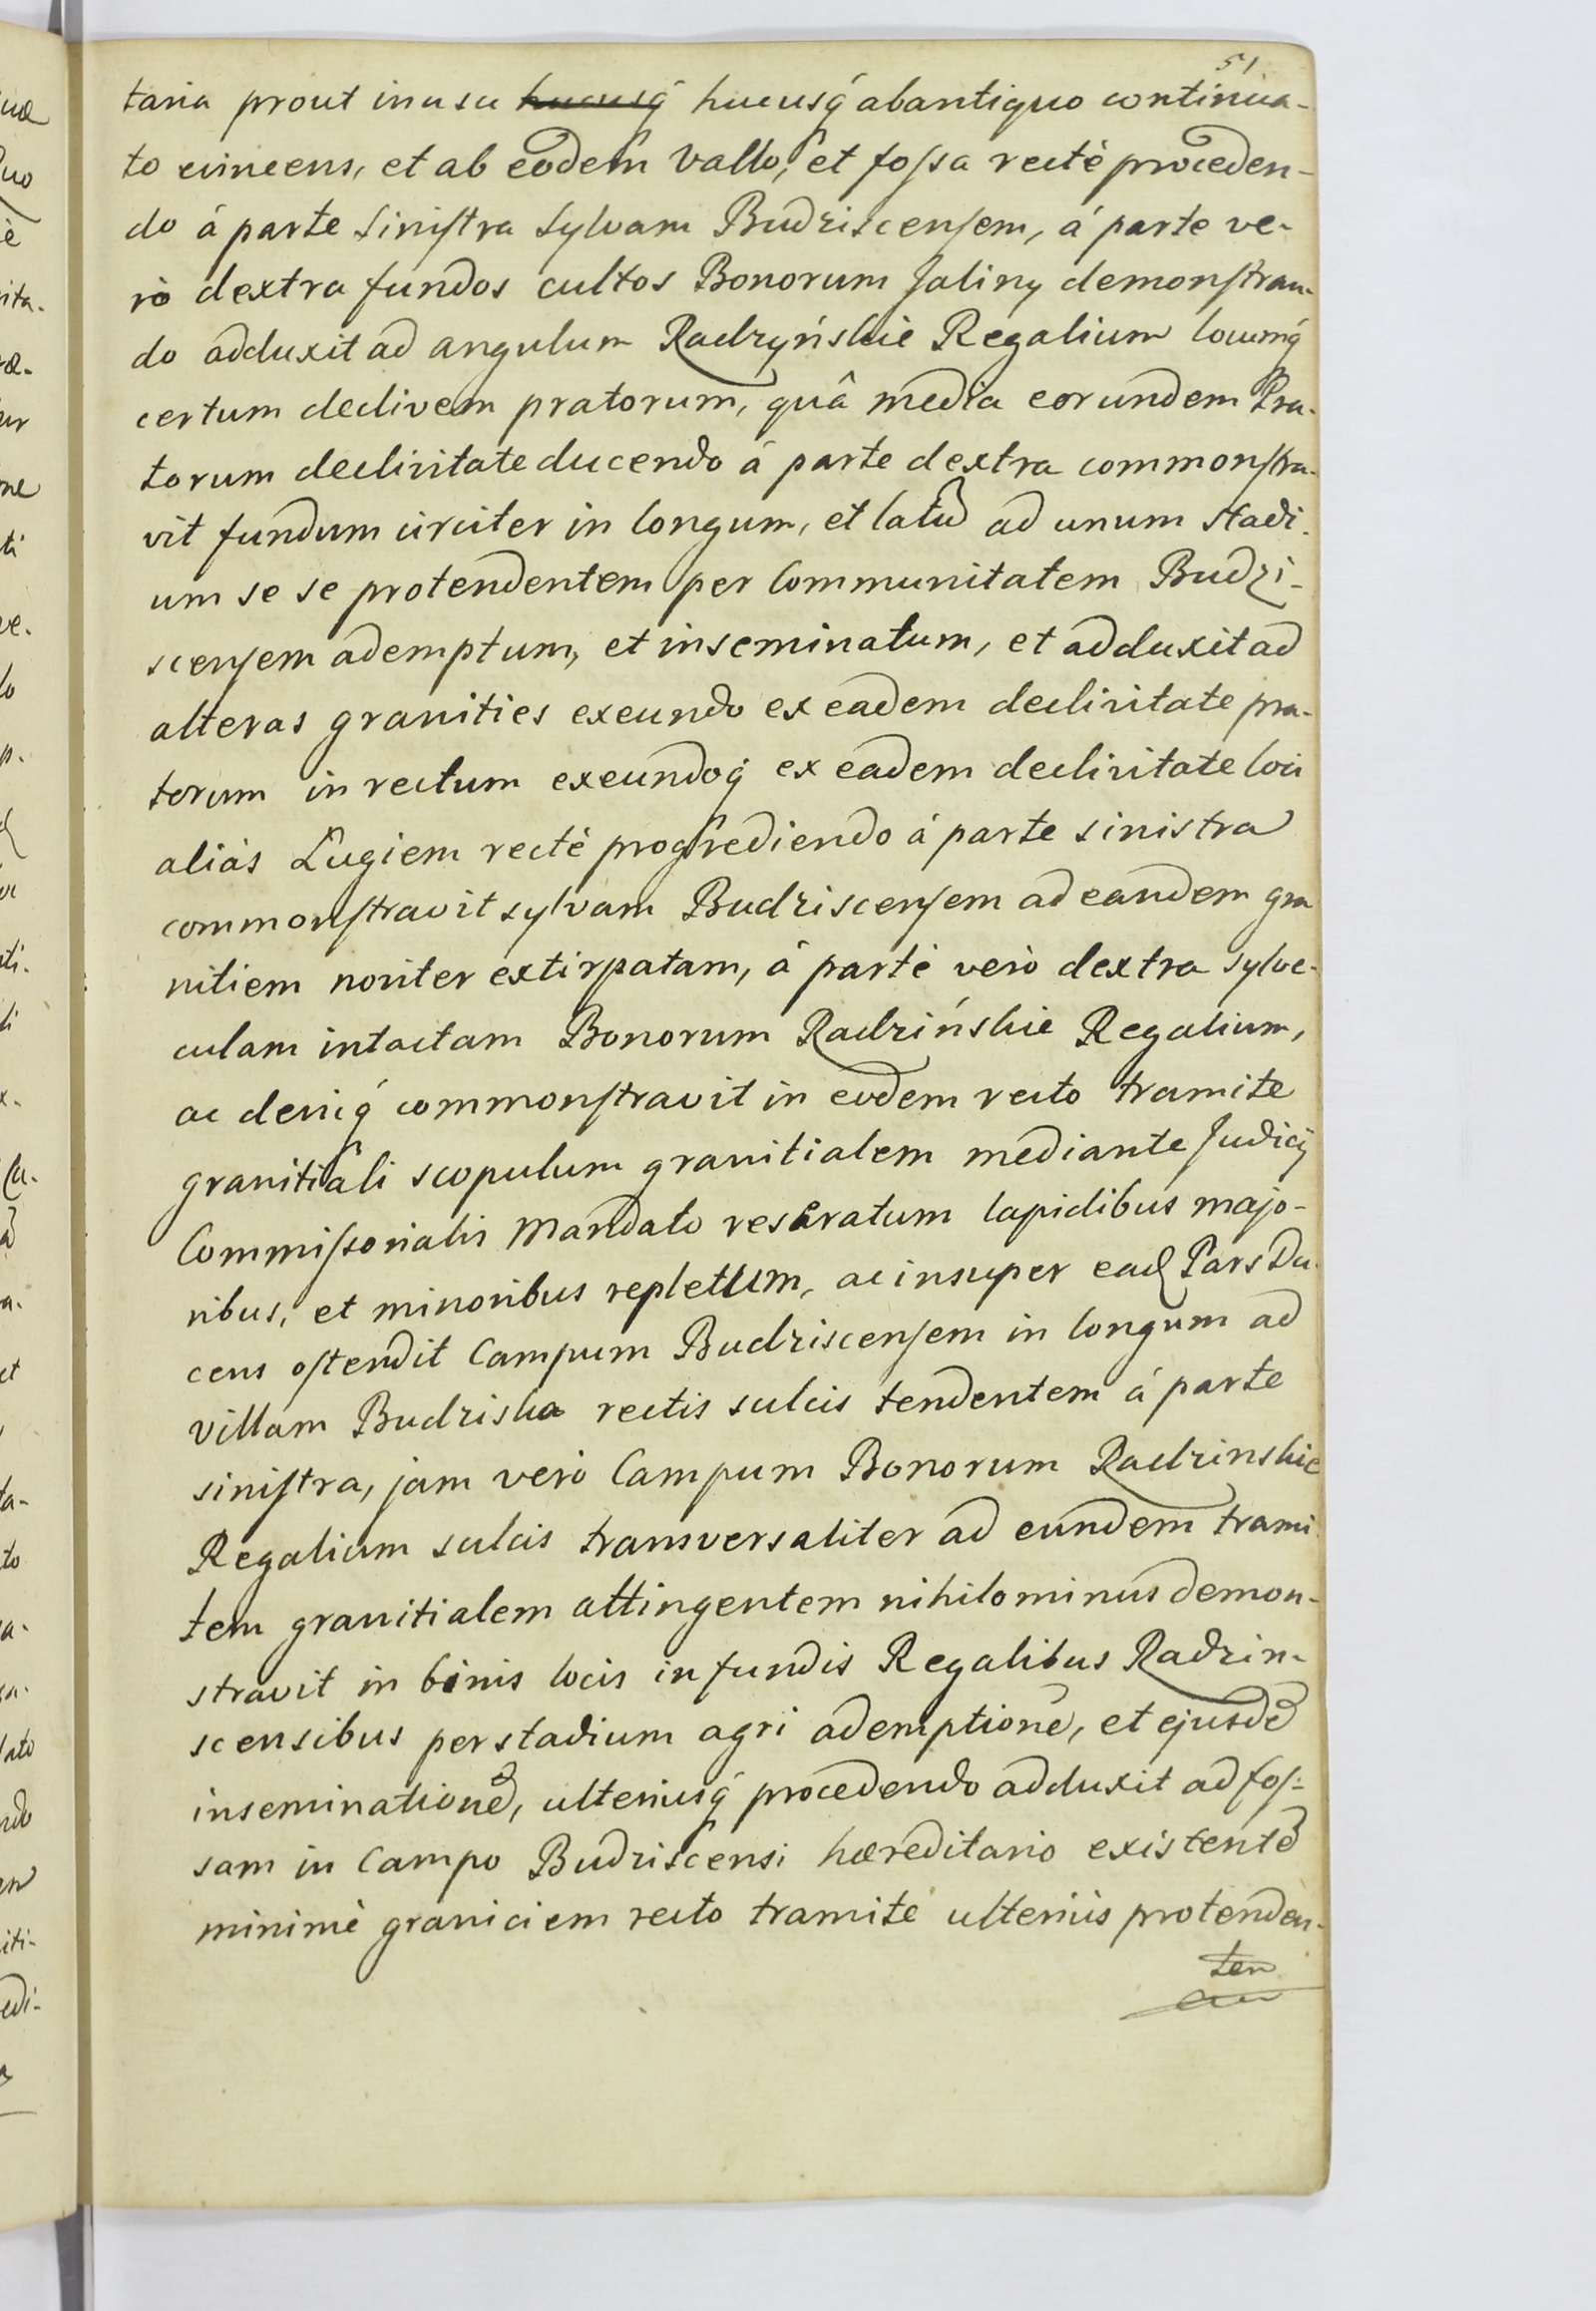 51
taria prout in usu hucusq́ hucusq́ ab antiquo continua-
to evincens, et ab eodem Vallo, et foſsa rectè proceden-
do á parte Siniſtra Sylvam Budziscenſem, á parte ve-
rò dextra fundos cultos Bonorum Jaliny demonſtran-
do adduxit ad angulum Radzyńskie Regalium locumq́
certum declivem pratorum, quâ media eorundem Pra-
torum declivitate ducendo á parte dextra commonſtra-
vit fundum circiter in longum, et latũ ad unum stadi-
um se se protendentem per Communitatem Budzi-
scenſem ademptum, et inseminatum, et adduxit ad
alteras granities exeundo ex eadem declivitate pra-
torum in rectum exeundoq́ ex eadem declivitate loci
aliàs Ługiem rectè progrediendo á parte sinistra
commonſtravit sylvam Budziscenſem ad eandem gra
nitiem noviter extirpatam, á parte verò dextra sylve-
culam intactam Bonorum Radzińskie Regalium,
ac deniq́ commonſtravit in eodem recto tramite
granitiali scopulum granitialem mediante Judicij
Commiſsorialis Mandato reseratum lapidibus majo-
ribus, et minoribus repletum, ac insuper ead Pars Du-
cens oſtendit Campum Budziscenſem in longum ad
villam Budziska rectis sulcis tendentem á parte
siniſtra, jam verò Campum Bonorum Radzinskie
Regalium sulcis transversaliter ad eundem trami
tem granitialem attingentem nihilominus demon-
stravit in binis locis in fundis Regalibus Radzin-
scensibus per stadium agri ademptionẽ, et ejusdẽ
inseminationẽ, ulteriusq́ procedendo adduxit ad foſ-
sam in Campo Budziscensi hæreditario existentẽ
minimè graniciem recto tramite ulteriùs protenden-
tem